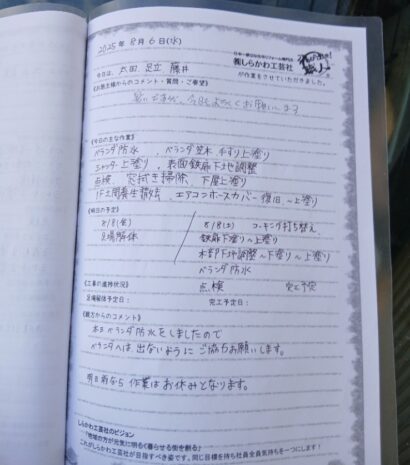 2025年 8月 6日(水)
日本一親切な住宅リフォーム専門店
㈱しらかわ工芸社
が作業をさせていただきました。
今日は、太田 足立 藤井
《お施主様からのコメント・質問・ご要望》
暑いですが、今日もよろしくお願いします
《今日の主な作業》
ベランダ防水、ベランダ笠木 手すり上塗り
シャッター上塗り、表面鉄扉下地調整
点検 窓拭き掃除 下屋上塗り
1F土間養生撤去 エアコンホースカバー復旧、～上塗り
《明日の予定》
8/8(金)
足場解体
8/8(土) コーキング打ち替え
鉄扉下塗り～上塗り
木部下地調整～下塗り～上塗り
ベランダ防水
《工事の進捗状況》
点検 完了予定
足場解体予定日:
完工予定日:
《親方からのコメント》
本日ベランダ防水をしましたので
ベランダへは出ないようにご協力お願いします。
明日 作業はお休みとなります。
しらかわ工芸社のビジョン
「地域の方が元気に明るく暮らせる街を創る」
これがしらかわ工芸社が目指すべき姿です。同じ目標を持ち社員全員気持ちを一つにします!